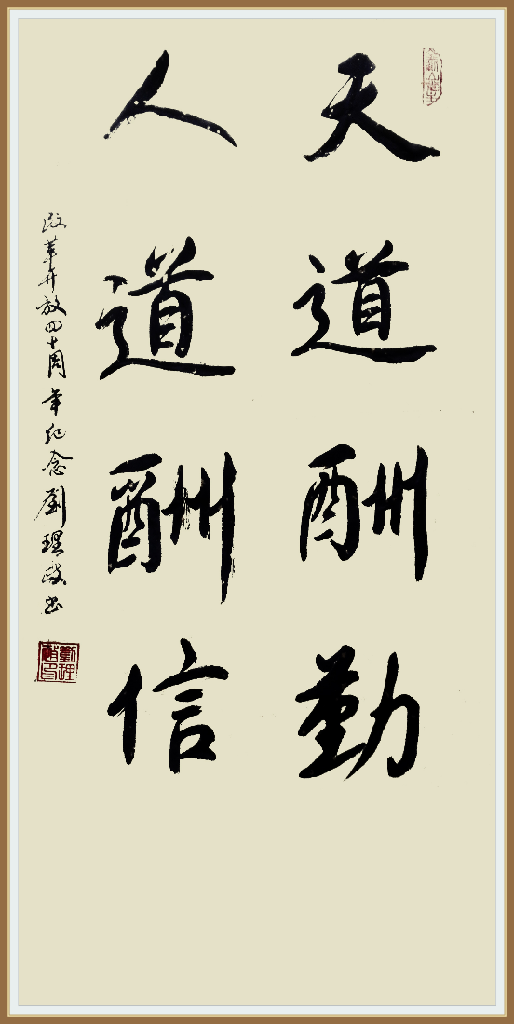 天道酬勤
人道酬信
改革开放四十周年纪念劉理政书